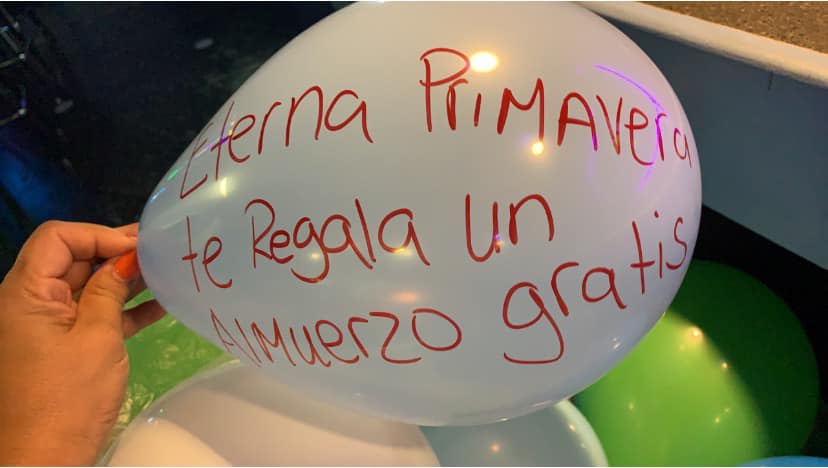 Eterna PriMAvera
te Regala un
AlMuerzo gratis